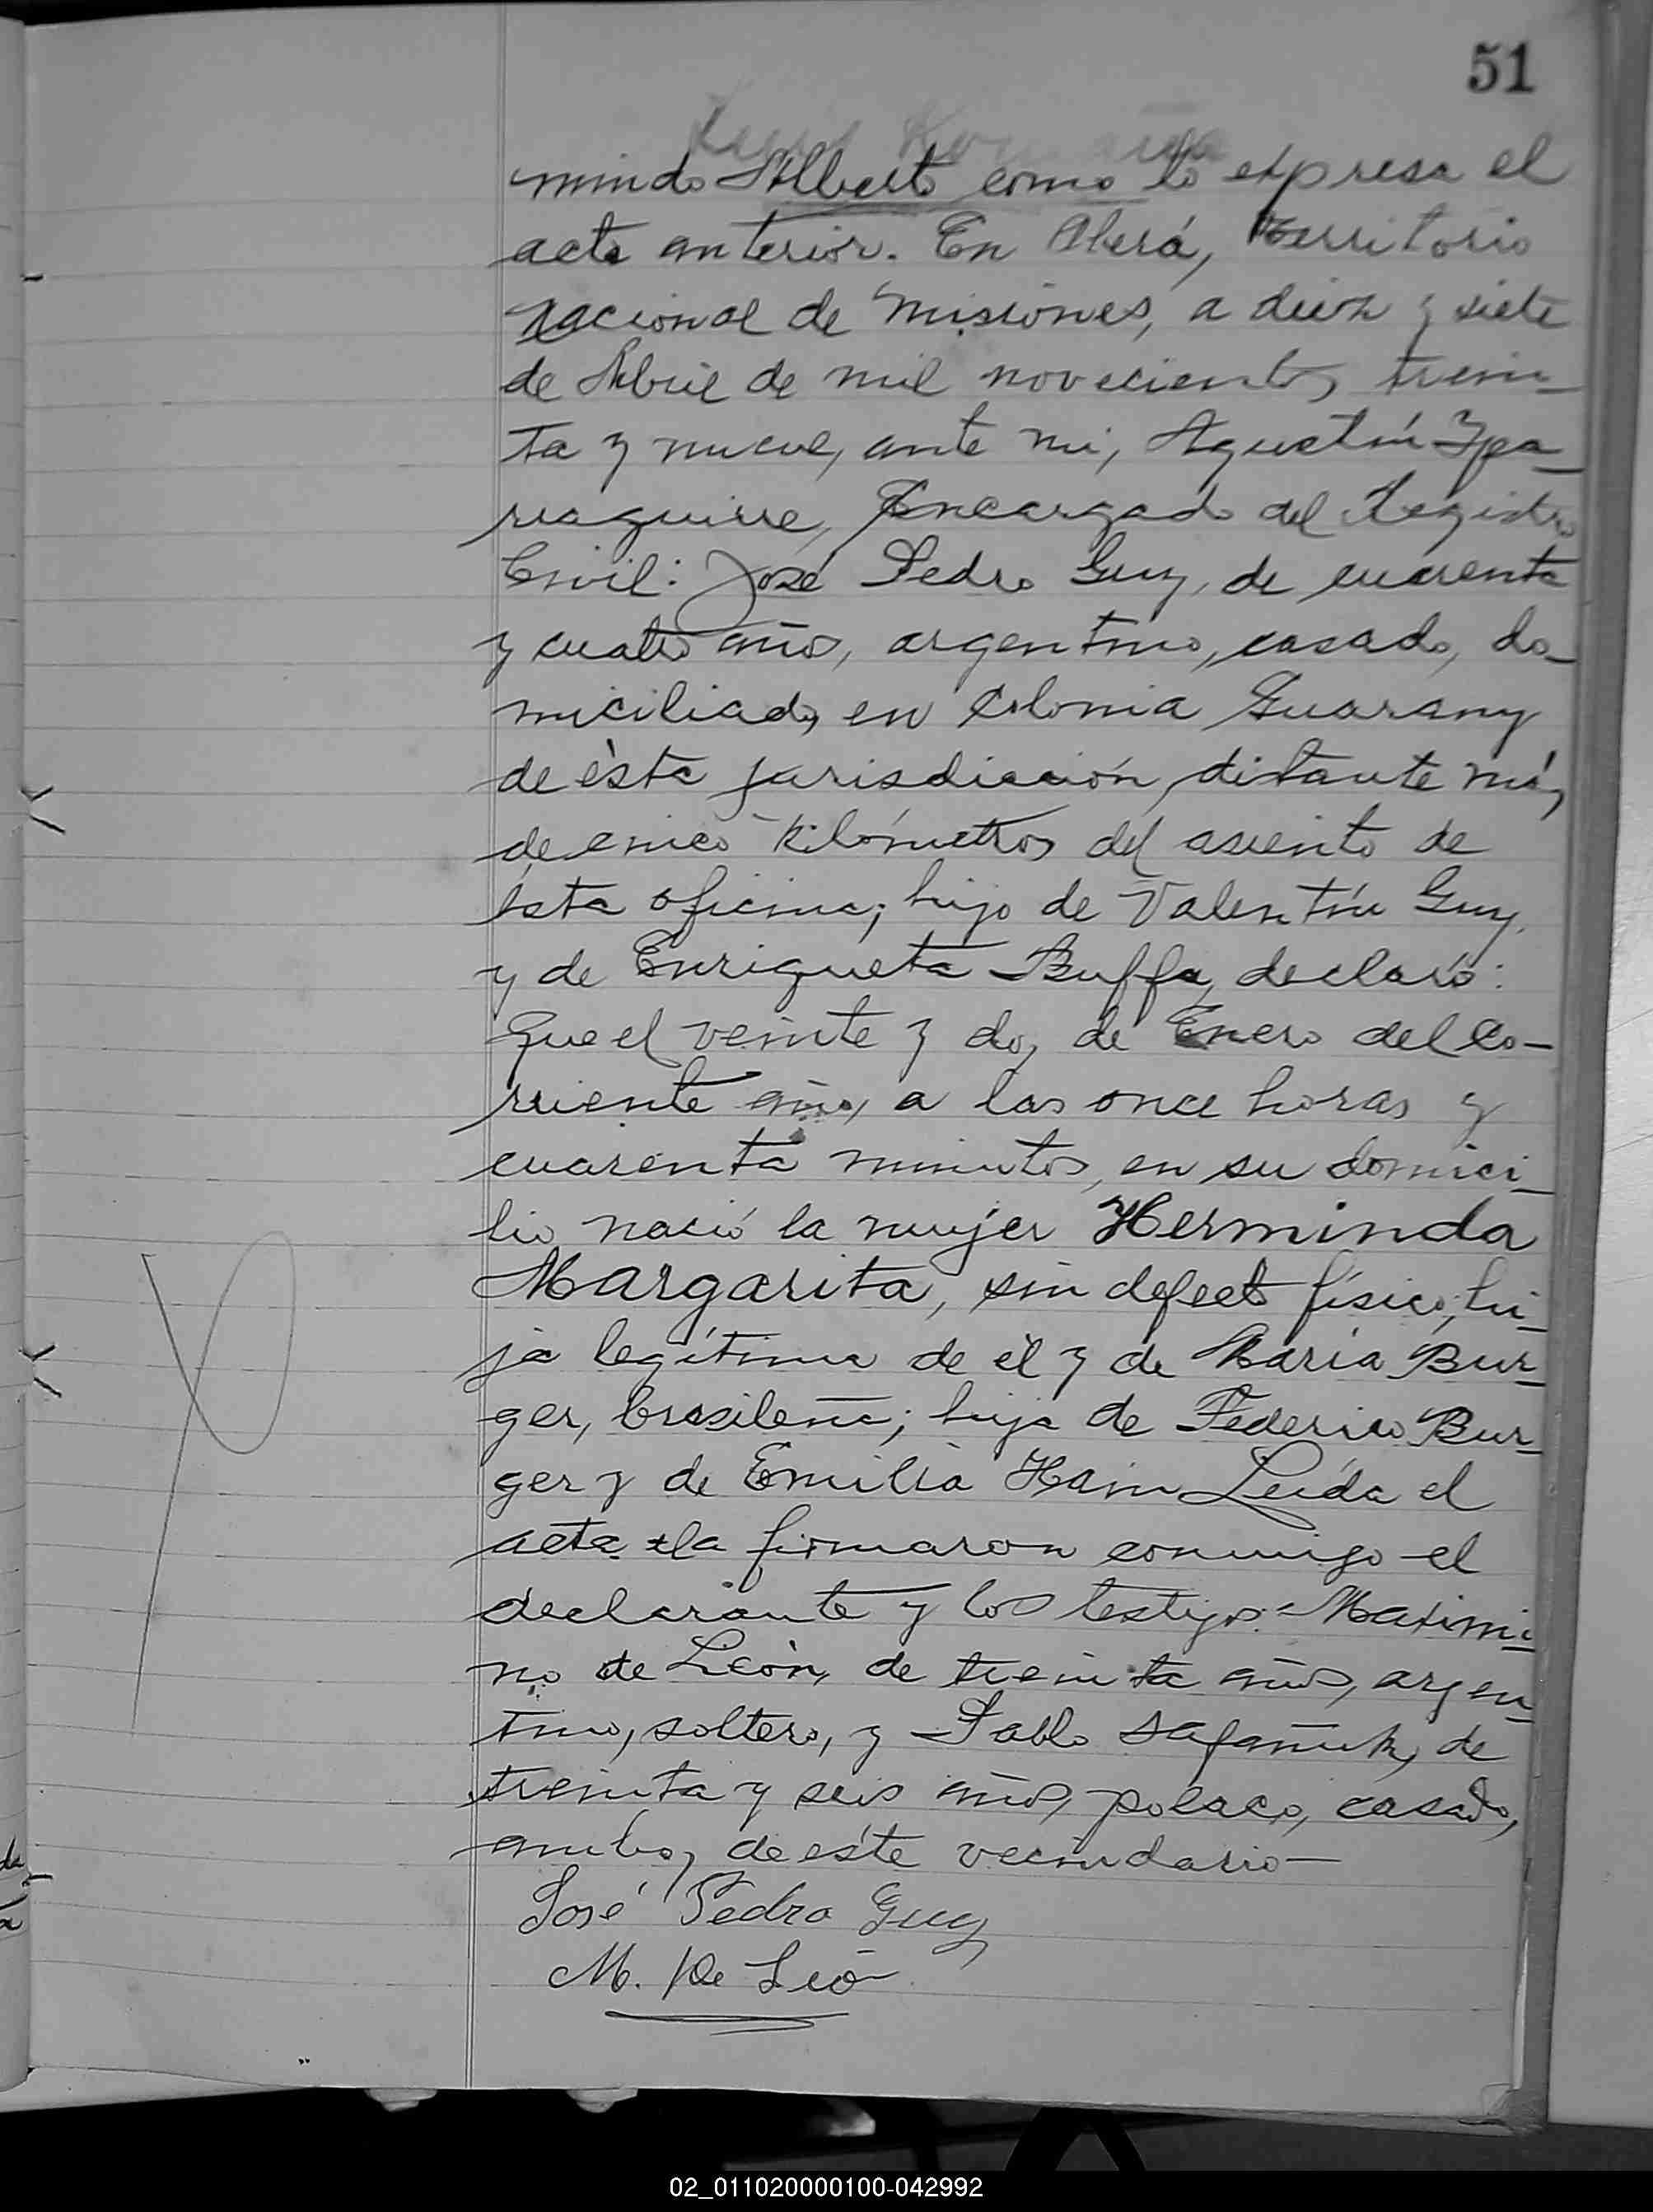 51
mindo Alberto como lo expresa el
acta anterior. En Oberá, Territorio
nacional de Misiones, a diez y siete
de Abril de mil novecientos trein-
ta y nueve, ante mi, Agustín Ypa-
raguirre, Encargado del Registro
Civil: José Pedro Guy, de cuarenta
y cuatro años, argentino, casado, do-
miciliado en Colonia Guarany
de ésta jurisdicción, distante más
de cinco kilómetros del asiento de
ésta oficina; hijo de Valentín Guy
y de Enriqueta Buffa, declaró:
Que el veinte y dos de Enero del co-
rriente año, a las once horas y
cuarenta minutos, en su domici-
lio nació la mujer Herminda
Margarita, sin defecto físico, hi-
ja legítima de él y de María Bur-
ger, brasileña; hija de Federico Bur-
ger y de Emilia Haim Leída el
acta la firmaron conmigo el
declarante y los testigos: Maximi-
no de León, de treinta años, argen-
tino, soltero, y Pablo Safañuk, de
treinta y seis años, polaco, casado,
ambos de éste vecindario—
José Pedro Guy
M. De León
02_011020000100-042992